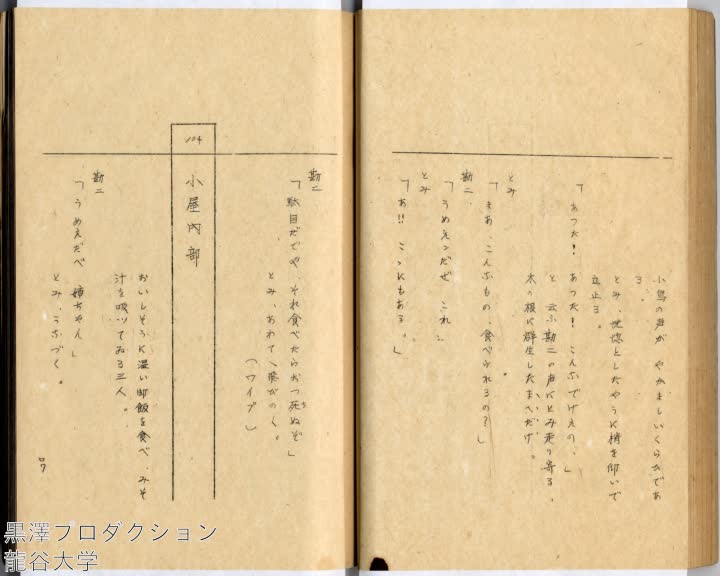 小鳥の声が やかましいくらゐであ
る。
とみ、恍惚としたやうに梢を仰いで
立止る。
「あつた! あつた! こんぶでけえの、」
と 云ふ勘二の声にとみ走り寄る、
木の根に群生したまいたけ。
とみ
「まあ、こんなもの、食べられるの?」
勘二
「うめえンだぜ これ」
とみ
「あ!! こゝにもある、」
勘二
「駄目だでや、それ食べたらおつ死ぬぞ」
とみ、あわてゝ飛びのく。
(ワイプ)
104
小屋内部
おいしそうに温い御飯を食べ、みそ
汁を吸ツてゐる三人。
勘二
「うめえだべ 姉ちやん」
とみ、うなづく。
ロ7
黒澤プロダクション
龍谷大学